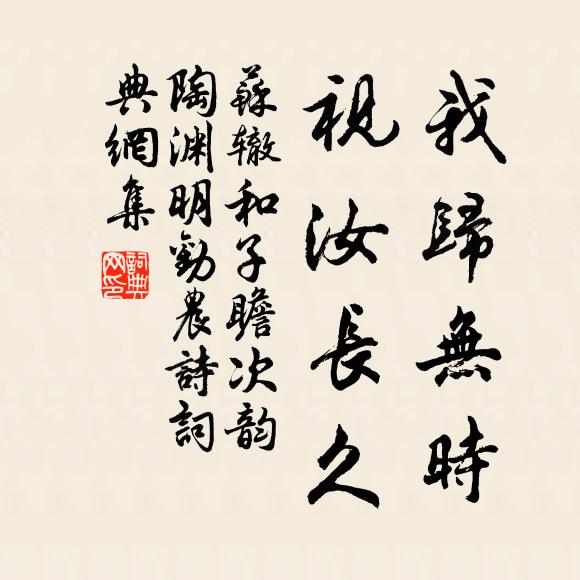 我歸無時
視汝長久
蘇轍和子瞻次韵
陶渊明勸農詩詞
典網集
詞典网印